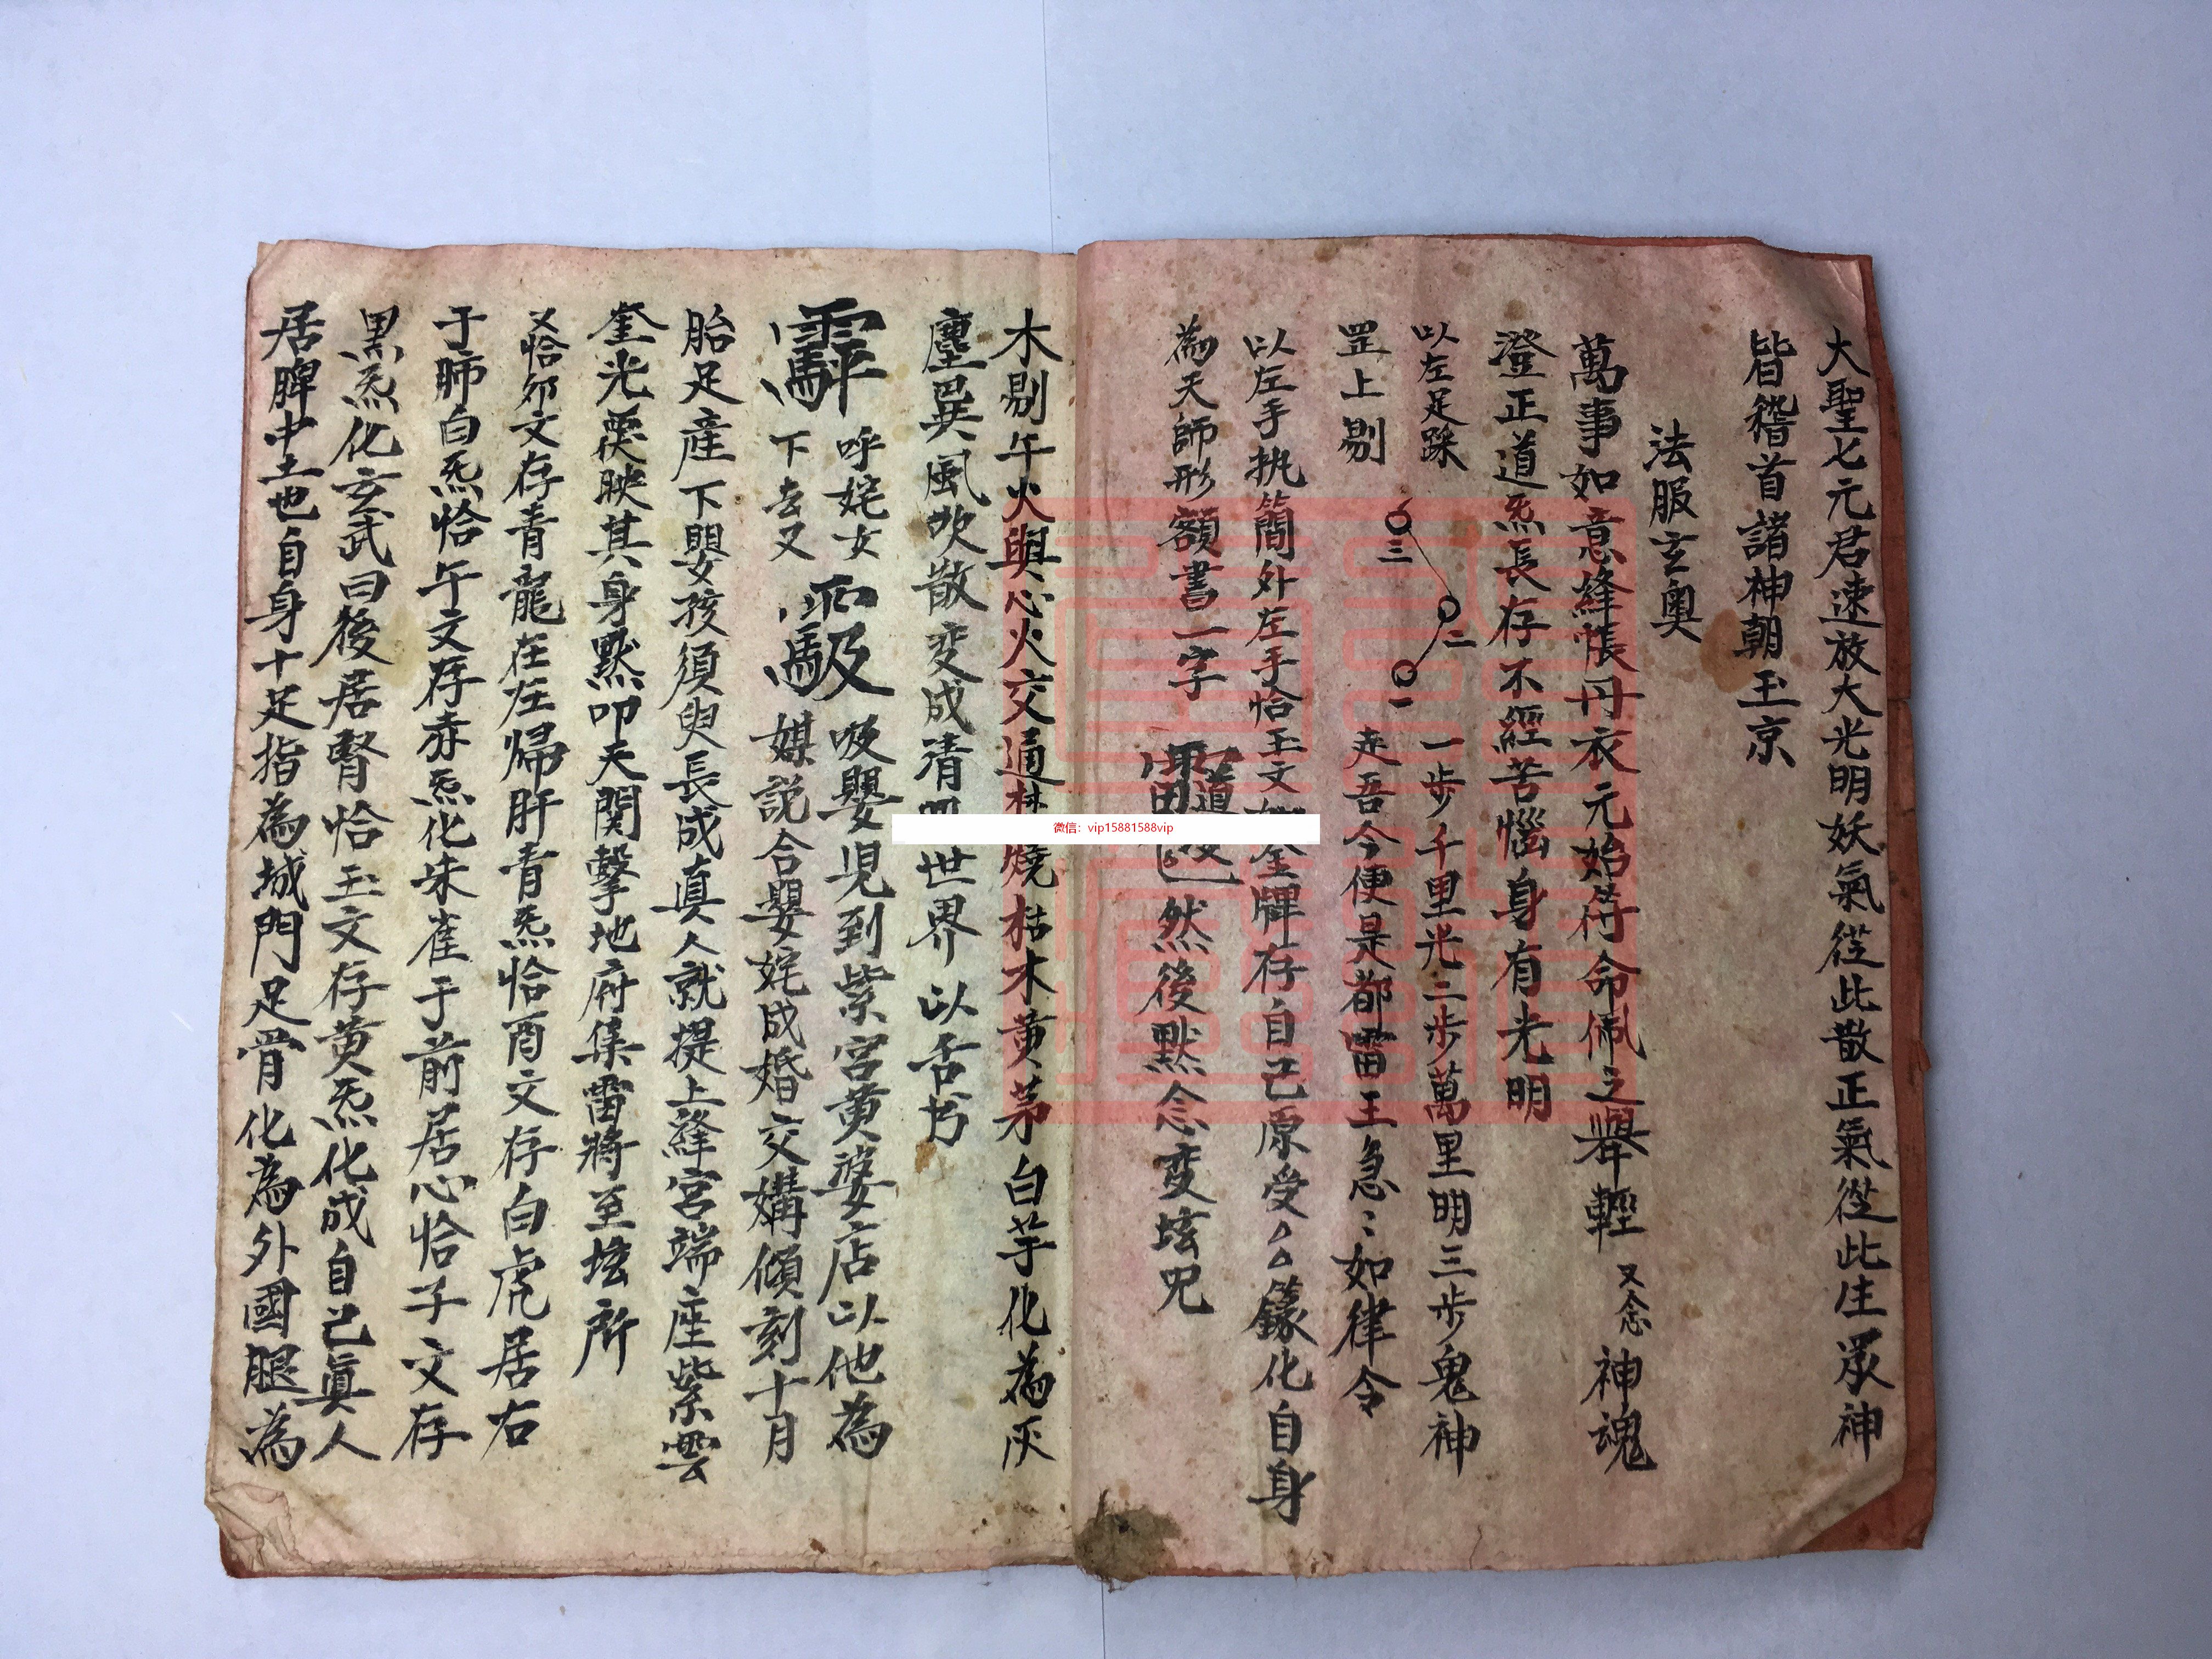 大聖七元君速放大光明妖氣從此散正氣從此生眾神
皆稽首諸神朝玉京
法服玄奧
萬事如意絳帳丹衣元始符命佩之舉輕 又念 神魂
澄正道炁長存不經苦惱身有光明
以左足跺 三 二 一 一步千里光二步萬里明三步鬼神
罡上剔 走吾今便是都雷王急〻如律令
以左手执簡外左手恰玉文 金牌存自己原受厶厶籙化自身
為天師形額書一字 然後默念变坛咒
木剔午火與心火交通 燒枯木黄茅白芋化為灰
塵巴巽風吹散変成清 世界以舌书
呼姹女 吸嬰児到紫宮黄婆店以他為
下去又 媒説合嬰姹成婚交媾傾刻十月
胎足産下嬰孩須臾長成真人就提上絳宮端座紫雲
奎光褁映其身黙叩天関擊地府集雷將至坛所
又恰卯文存青龍在左帰肝青炁恰酉文存白虎居右
于肺白炁恰午文存赤炁化朱雀于前居心恰子文存
黒炁化玄武曰後居腎恰玉文存黄炁化成自己真人
居脾中土也自身十足指為城門足骨化為外國腿為
微信：vip15881588vip